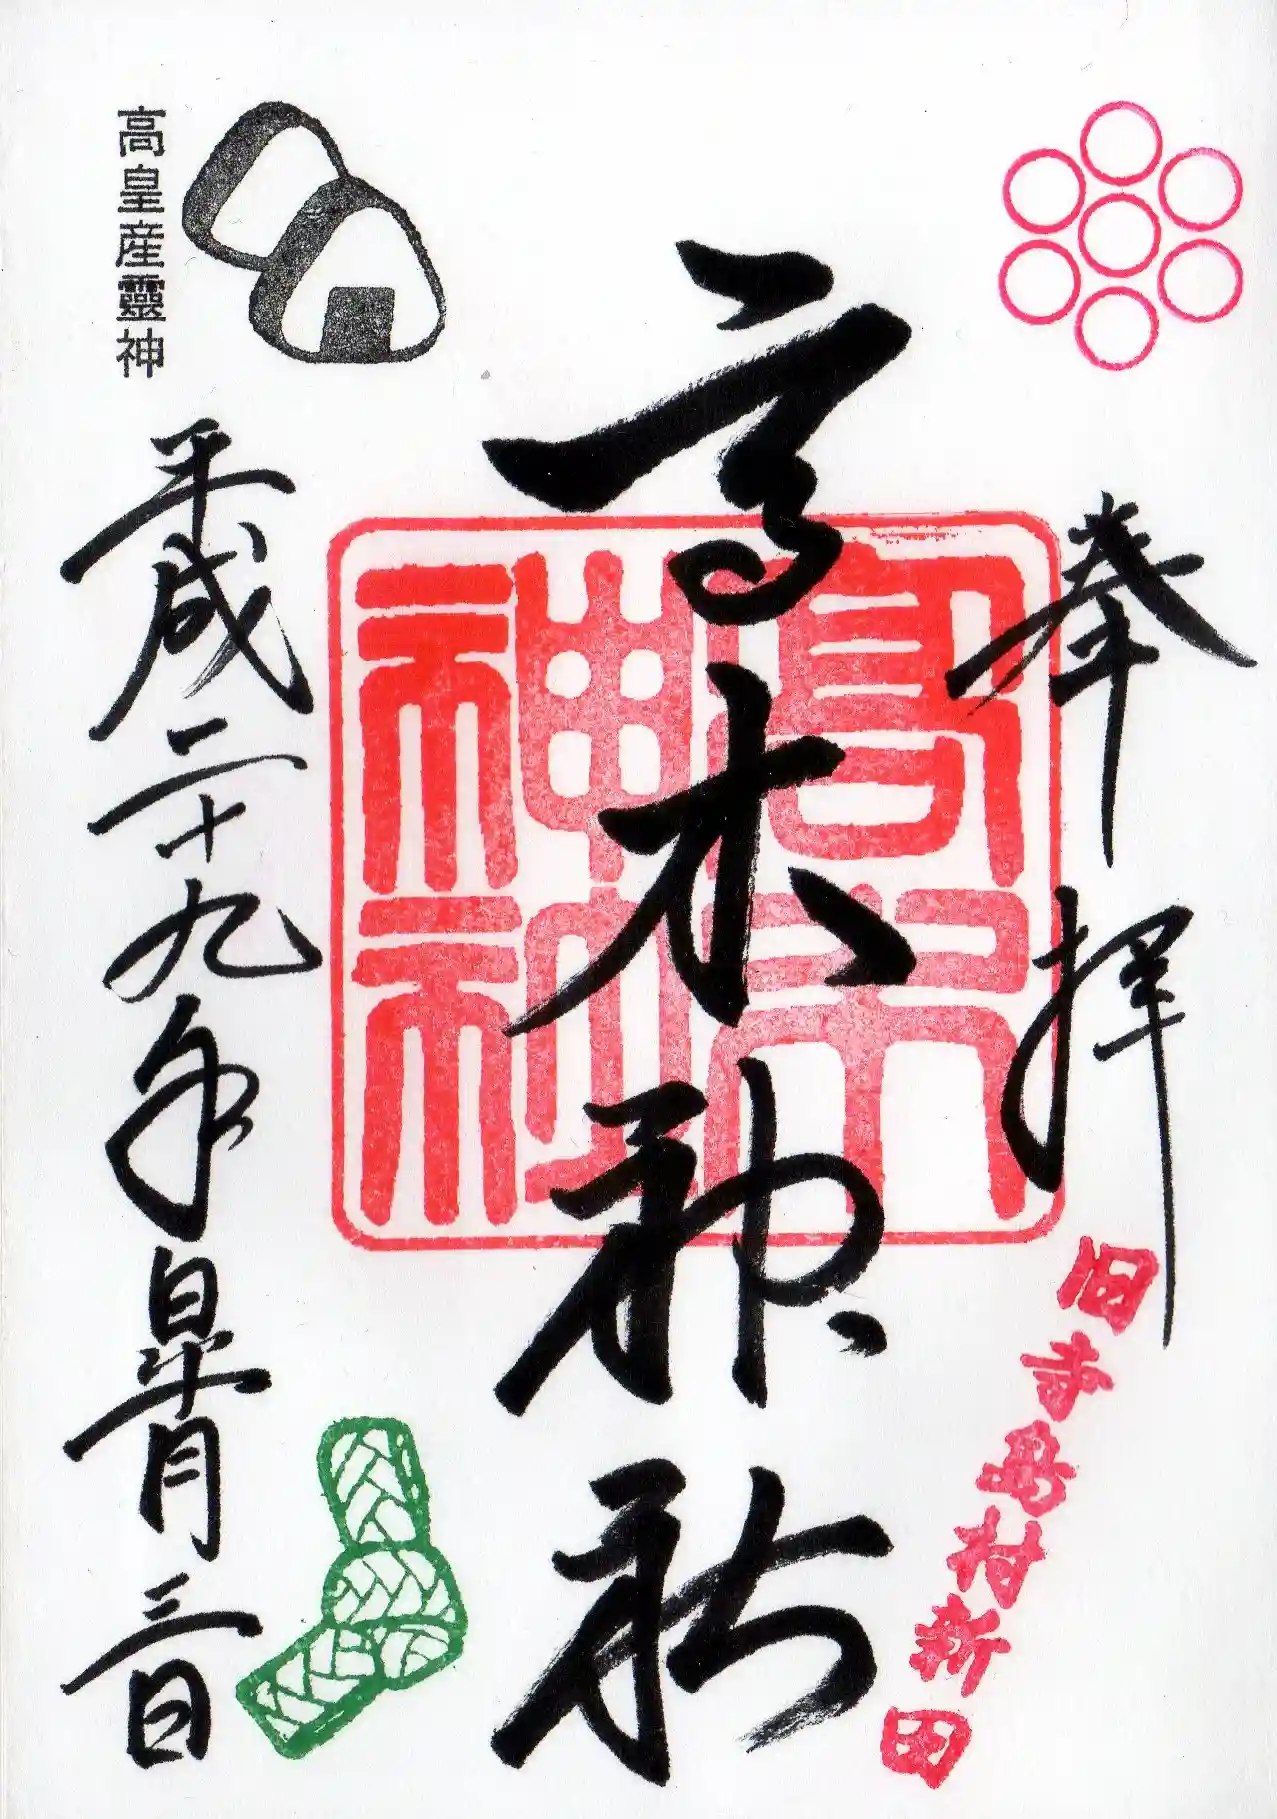 奉拝
旧寺島村新田
高木神社
高木
神社
高皇産靈神
平成二十九年皐月三日